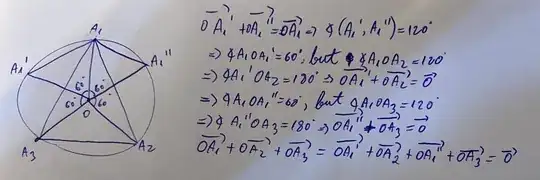 A₁
A₁'
A₁''
60° 60°
60° 60°
O
A₃
A₂
OA₁' + OA₁'' = OA₁ => ∢(A₁', A₁'') = 120°
=> ∢A₁'OA₁ = 60°, but ∢A₁OA₂ = 120°
=> ∢A₁'OA₂ = 180° => OA₁' + OA₂ = O
=> ∢A₁OA₁'' = 60°, but ∢A₁OA₃ = 120°
=> ∢A₁''OA₃ = 180° => OA₁'' + OA₃ = O
OA₁ + OA₂ + OA₃ = OA₁' + OA₂ + OA₁'' + OA₃ = O